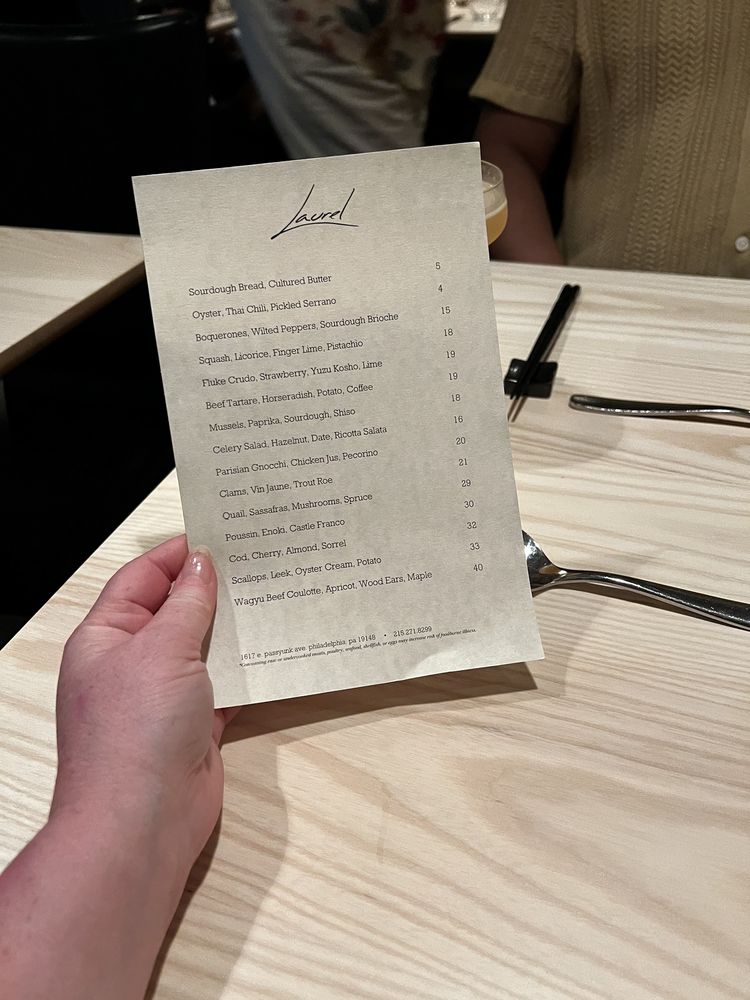 Laurel
Sourdough Bread, Cultured Butter 5
Oyster, Thai Chili, Pickled Serrano 4
Boquerones, Wilted Peppers, Sourdough Brioche 15
Squash, Licorice, Finger Lime, Pistachio 18
Fluke Crudo, Strawberry, Yuzu Kosho, Lime 19
Beef Tartare, Horseradish, Potato, Coffee 19
Mussels, Paprika, Sourdough, Shiso 18
Celery Salad, Hazelnut, Date, Ricotta Salata 16
Parisian Gnocchi, Chicken Jus, Pecorino 20
Clams, Vin Jaune, Trout Roe 21
Quail, Sassafras, Mushrooms, Spruce 29
Poussin, Enoki, Castle Franco 30
Cod, Cherry, Almond, Sorrel 32
Scallops, Leek, Oyster Cream, Potato 33
Wagyu Beef Coulotte, Apricot, Wood Ears, Maple 40
1617 e. passyunk ave. philadelphia. pa 19148 • 215.271.8299
*Consuming raw or undercooked meats, poultry, seafood, shellfish, or eggs may increase risk of foodborne illness.